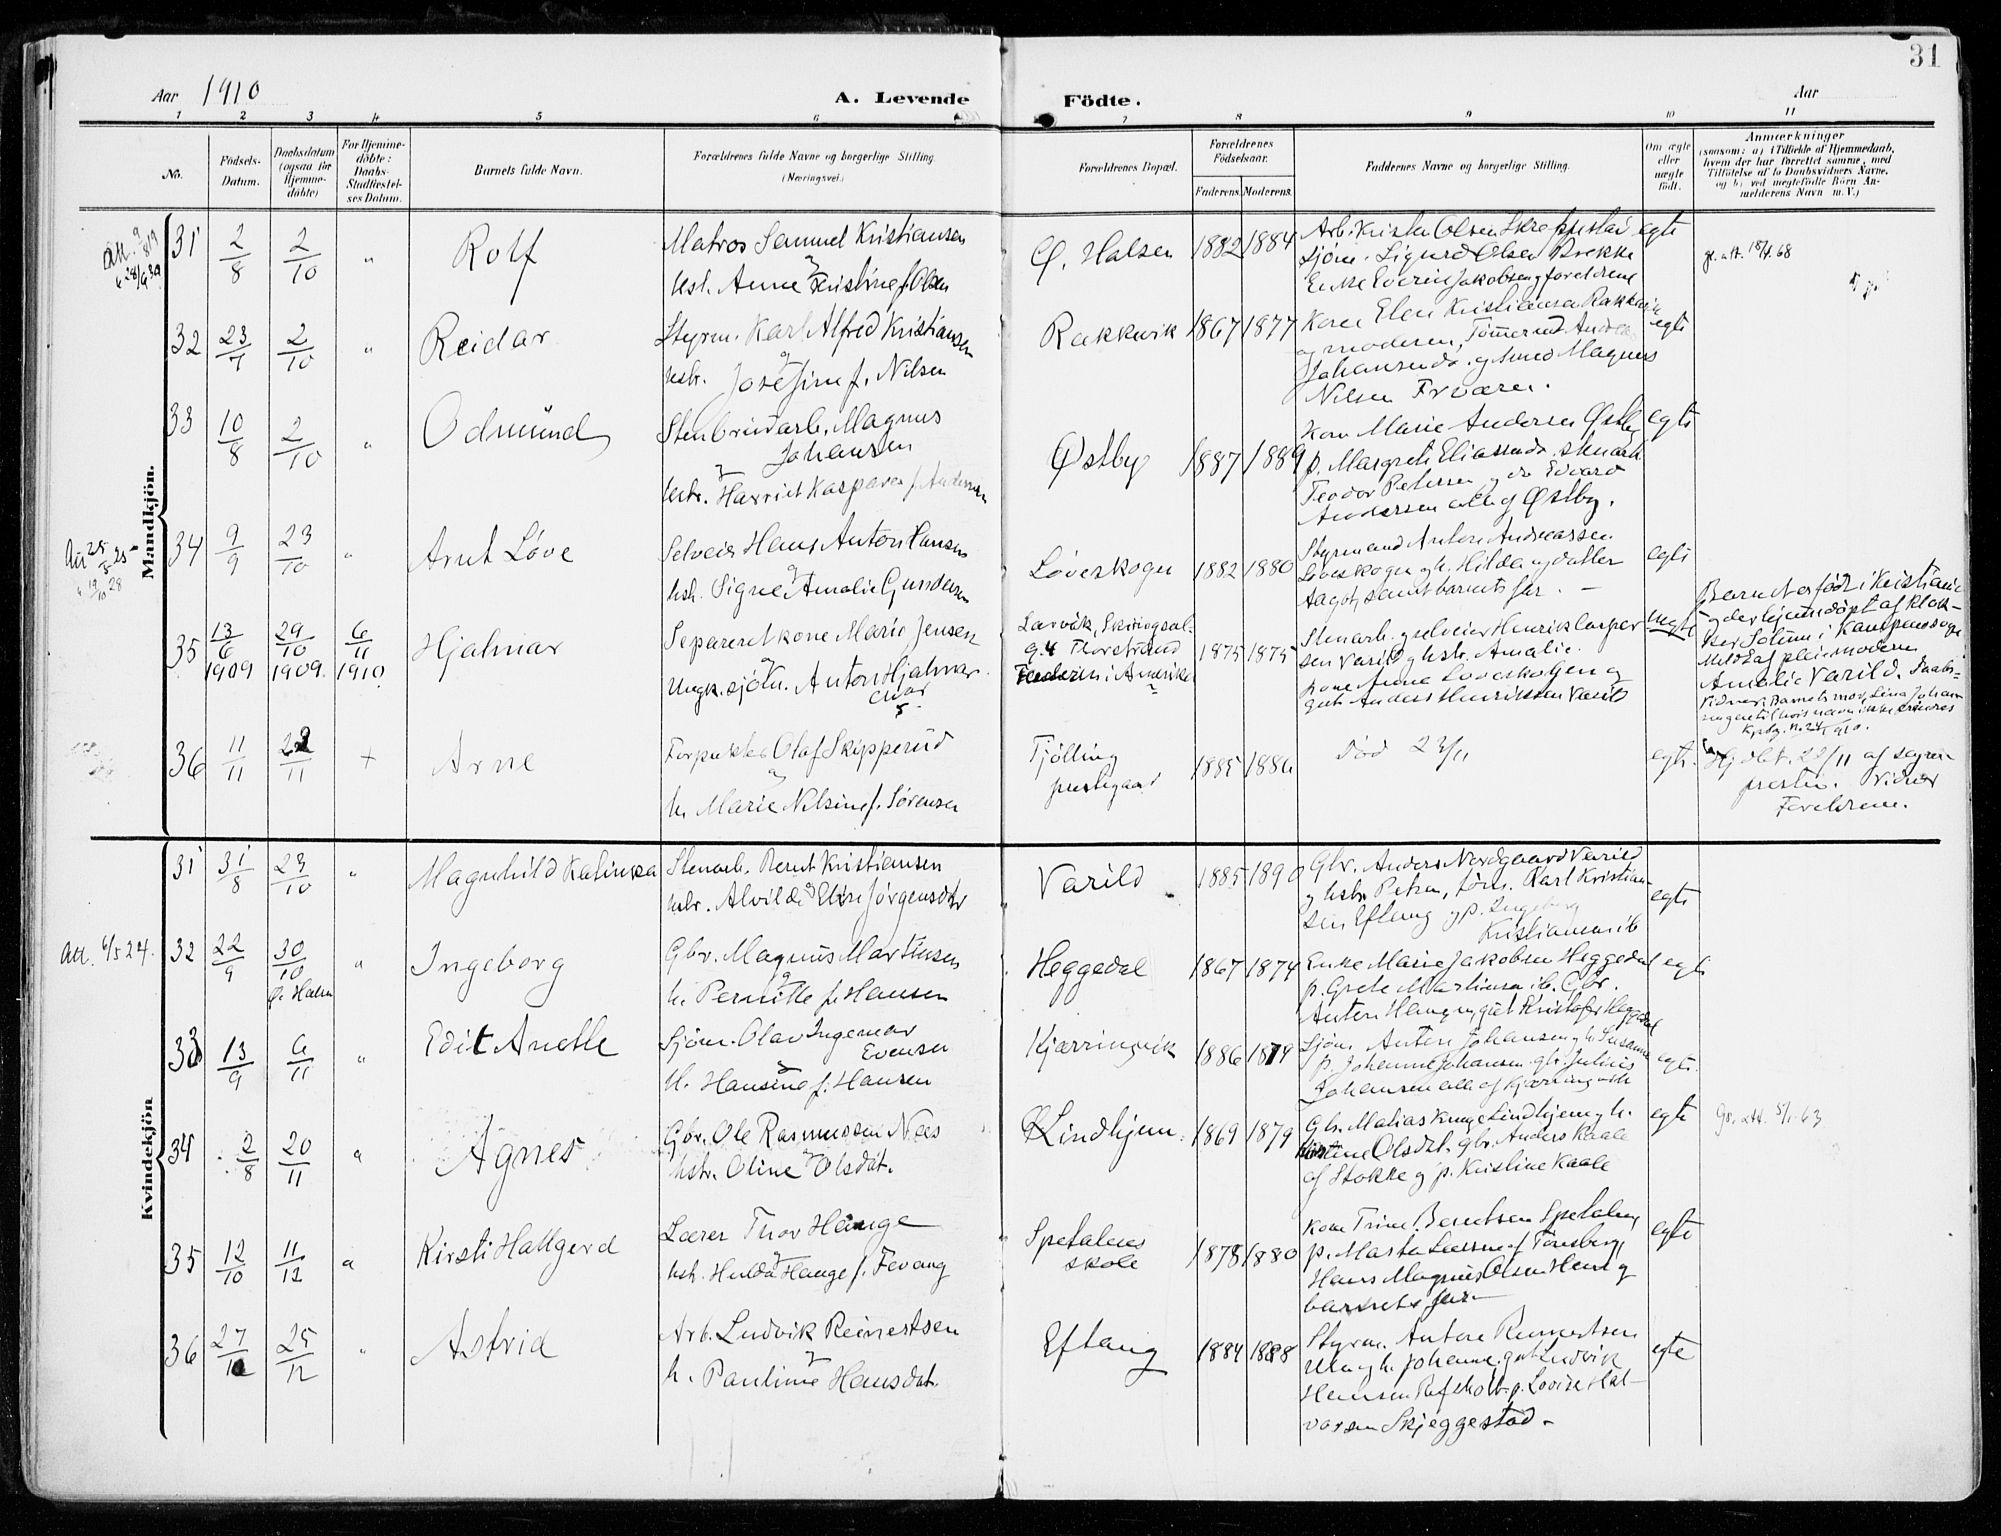 31
Aar 1910
A. Levende Födte.
Aar
1 2 3 4 5 6 7 8 9 10 11
No.
Födsels-Datum.
Daabsdatum (ogsaa for Hjemme-döbte)
For Hjemme-döbte: Daabs-Stadfæstel-ses Datum.
Barnets fulde Navn.
Forældrenes fulde Navne og borgerlige Stilling.
(Næringsvei.)
Forældrenes Bopæl.
Forældrenes Födselsaar.
Faderens. Moderens.
Faddernes Navne og borgerlige Stilling.
Om ægte eller uægte födt.
Anmærkninger
(saasom: a) i Tilfælde af Hjemmedaab,
hvem der har forrettet samme, med
Tilföielse af to Daabsvidners Navne,
og b) ved uægtefödte Börn An-
melderens Navn m. V.)
Mandkjön.
31 2/8 2/10 " Rolf
Matros Samuel Kristiansen
hst. Anne Kristine f. Olsen
Ø. Halsen 1882 1884
Sjöm. Sigurd Olsen Brekke
Enke Everine Jakobsen og foreldrene
egte
gl. att. 18/4.68
32 23/7 2/10 " Reidar
Styrm. Karl Alfred Kristiansen
hstr. Josefine f. Nilsen
Rakkevik 1867 1877
Kone Elen Kristiansen Rakkevik
og moderen, Tömermd Andreas
Johansen do. og Smed Magnus
Nilsen Frværn.
egte
33 10/8 2/10 " Odmund
Stenbrudarb. Magnus
Johansen
hstr. Harriet Kaspara f. Andersen
Østby 1887 1889
Kone Marie Andersen Østby
p. Margrete Eliassen do. stenarb.
Teodor Petersen og do Edvard
Andersen alle af Østby.
egte
34 9/9 23/10 " Arnt Løve
Selveier Hans Anton Hansen
hst. Signe Amalie Gundersen
Løveskogen 1882 1880
Styrmand Anton Andreassen
Løveskogen og h. Hilda og datter
Aagot, samt barnets far. —
egte
35 13/6 1909 29/10 1909. 6/11 1910 Hjalmar
Separeret kone Marie Jensen
Ungk. sjöm. Anton Hjalmar
Larvik,
Thorstrand
Faderen i Amerika
1875 1875
Stenarb. og selveier Henrik Casper
sen Varild og hstr. Amalie.
kone Anna Loveskogen og
gut Anders Henriksen Varild
uegte
Barnet er født i Kristiania
og der hjemmedöpt af klok-
ker Solum i Kampens sogn
Meldt af pleiemoderen
Amalie Varild. Daabs-
vidner: Barnets mor, Lina Johan-
36 11/11 22/11 + Arne
Forpakter Olaf Skipperud
h. Marie Nilsine f. Sørensen
Tjølling
prestegaard
1885 1886
Død 23/11
egte.
Hj. döbt. 22/11 af sogne-
presten. Vidner
Foreldrene.
Kvindekjön
31 31/8 23/10 " Magnhild Katinka
Stenarb. Bernt Kristiansen
hstr. Alvilde Elise Jørgensdtr
Varild 1885 1890
Gbr. Anders Nordgaard Varild
og hstr. Petra, tøm. Karl Kristian-
sen Eftang og p. Ingeborg
Kristiansen ib
egte
Att. 6/5 24. 32 22/9 30/10 Ø. Halsen " Ingeborg
Gbr. Magnus Martinsen
h. Pernille f. Hansen
Heggedal 1867 1874
Enke Marie Jakobsen Heggedal
p. Grete Martinsen ib. Gbr.
Anton Hang og gut Kristofer Heggedal
egte
33 13/9 6/11 " Edit Anette
Sjöm. Olav Ingemar
Evensen
h. Hansine f. Hansen
Kjærringvik 1886 1879
Sjöm. Anton Johansen og h. Susanne
p. Johanne Johansen gbr. Julius
Johansen alle af Kjærringvik
egte.
34 2/8 20/11 " Agnes
Gbr. Ole Rasmussen Næs
hstr. Oline Olsdat.
Lindhjem. 1869 1879
Gbr. Matias Kruge Lindhjem og h.
Olsdat. gbr. Anders Kaale
af Stokke og p. Kristine Kaale
egte
35 12/10 11/12 " Kirsti Hallgerd
Lærer Thor Hauge
hst. Hulda Hauge f. Fevang
Spetalens
skole
1878 1880
Kone Trine Berntsen Spetalen
p. Marta Larsen af Tønsberg,
Hans Magnus Olsen Hem og
barnets far —
egte
36 27/10 25/12 " Astrid
Arb. Ludvik Reinertsen
h. Pauline Hansdat.
Eftang 1884 1888
Styrm. Anton Reinertsen
Ula og h. Johanne. gut Ludvik
Hansen Refsholt p. Lovise Hal-
vorsen Skjeggestad —
egte